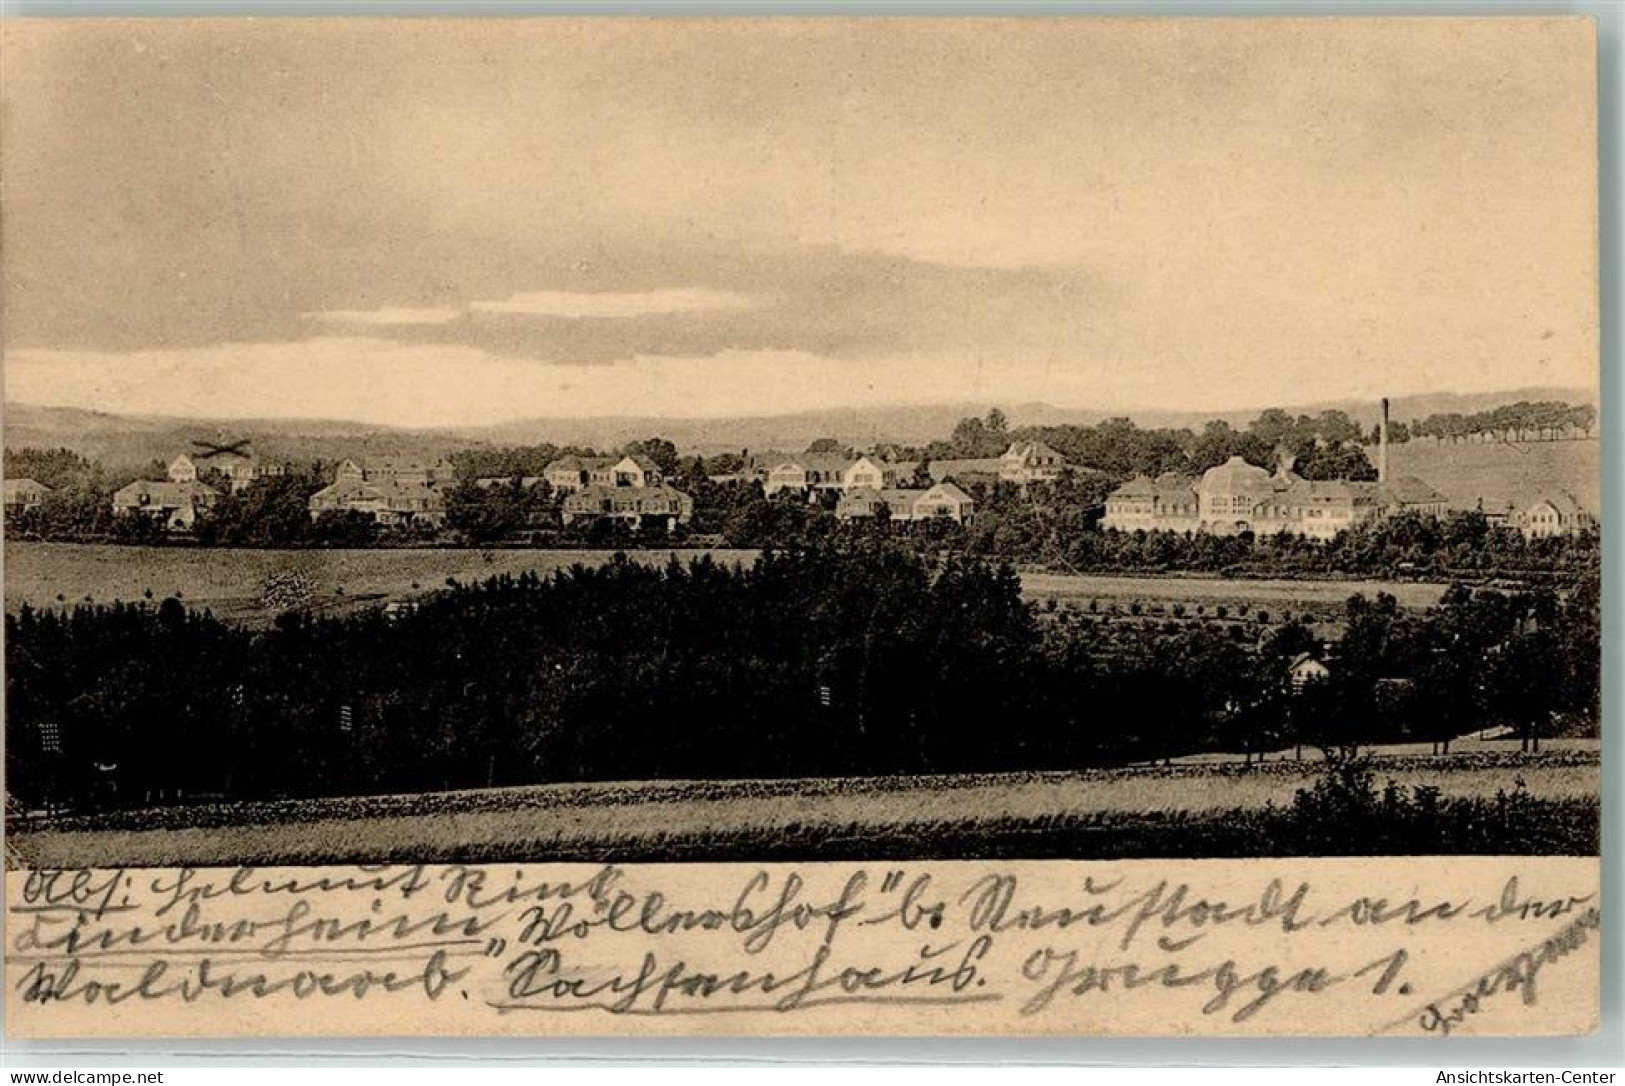 Abs: Helmut Rink
Kinderheim „Wöllershof“ b. Neustadt an der
Waldnaab. „Sachsenhaus. Gruppe 1.
www.ansichtskartenversand.com
Ansichtskarten-Center